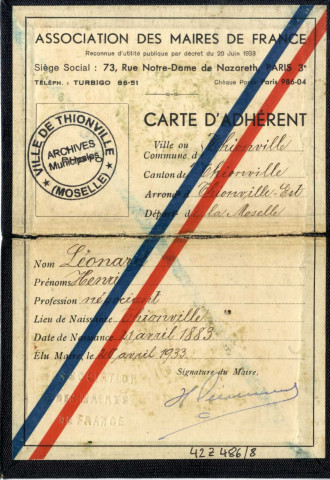 ASSOCIATION DES MAIRES DE FRANCE
Reconnue d'utilité publique par décret du 20 Juin 1933
Siège Social : 73, Rue Notre-Dame de Nazareth, PARIS 3e
TÉLÉPH. : TURBIGO 86-51 Chèque Postal Paris 986-04
VILLE DE THIONVILLE
ARCHIVES
Municipales
(MOSELLE)
CARTE D'ADHÉRENT
Ville ou
Commune de Thionville
Canton de Thionville
Arrond. de Thionville-Est
Départ. de la Moselle
Nom Léonard
Prénoms Henri
Profession négociant
Lieu de Naissance Thionville "
Date de Naissance avril 1883
Élu Maire, le avril 1933.
Signature du Maire,
ASSOCIATION
DES MAIRES
DE FRANCE
42Z486/8